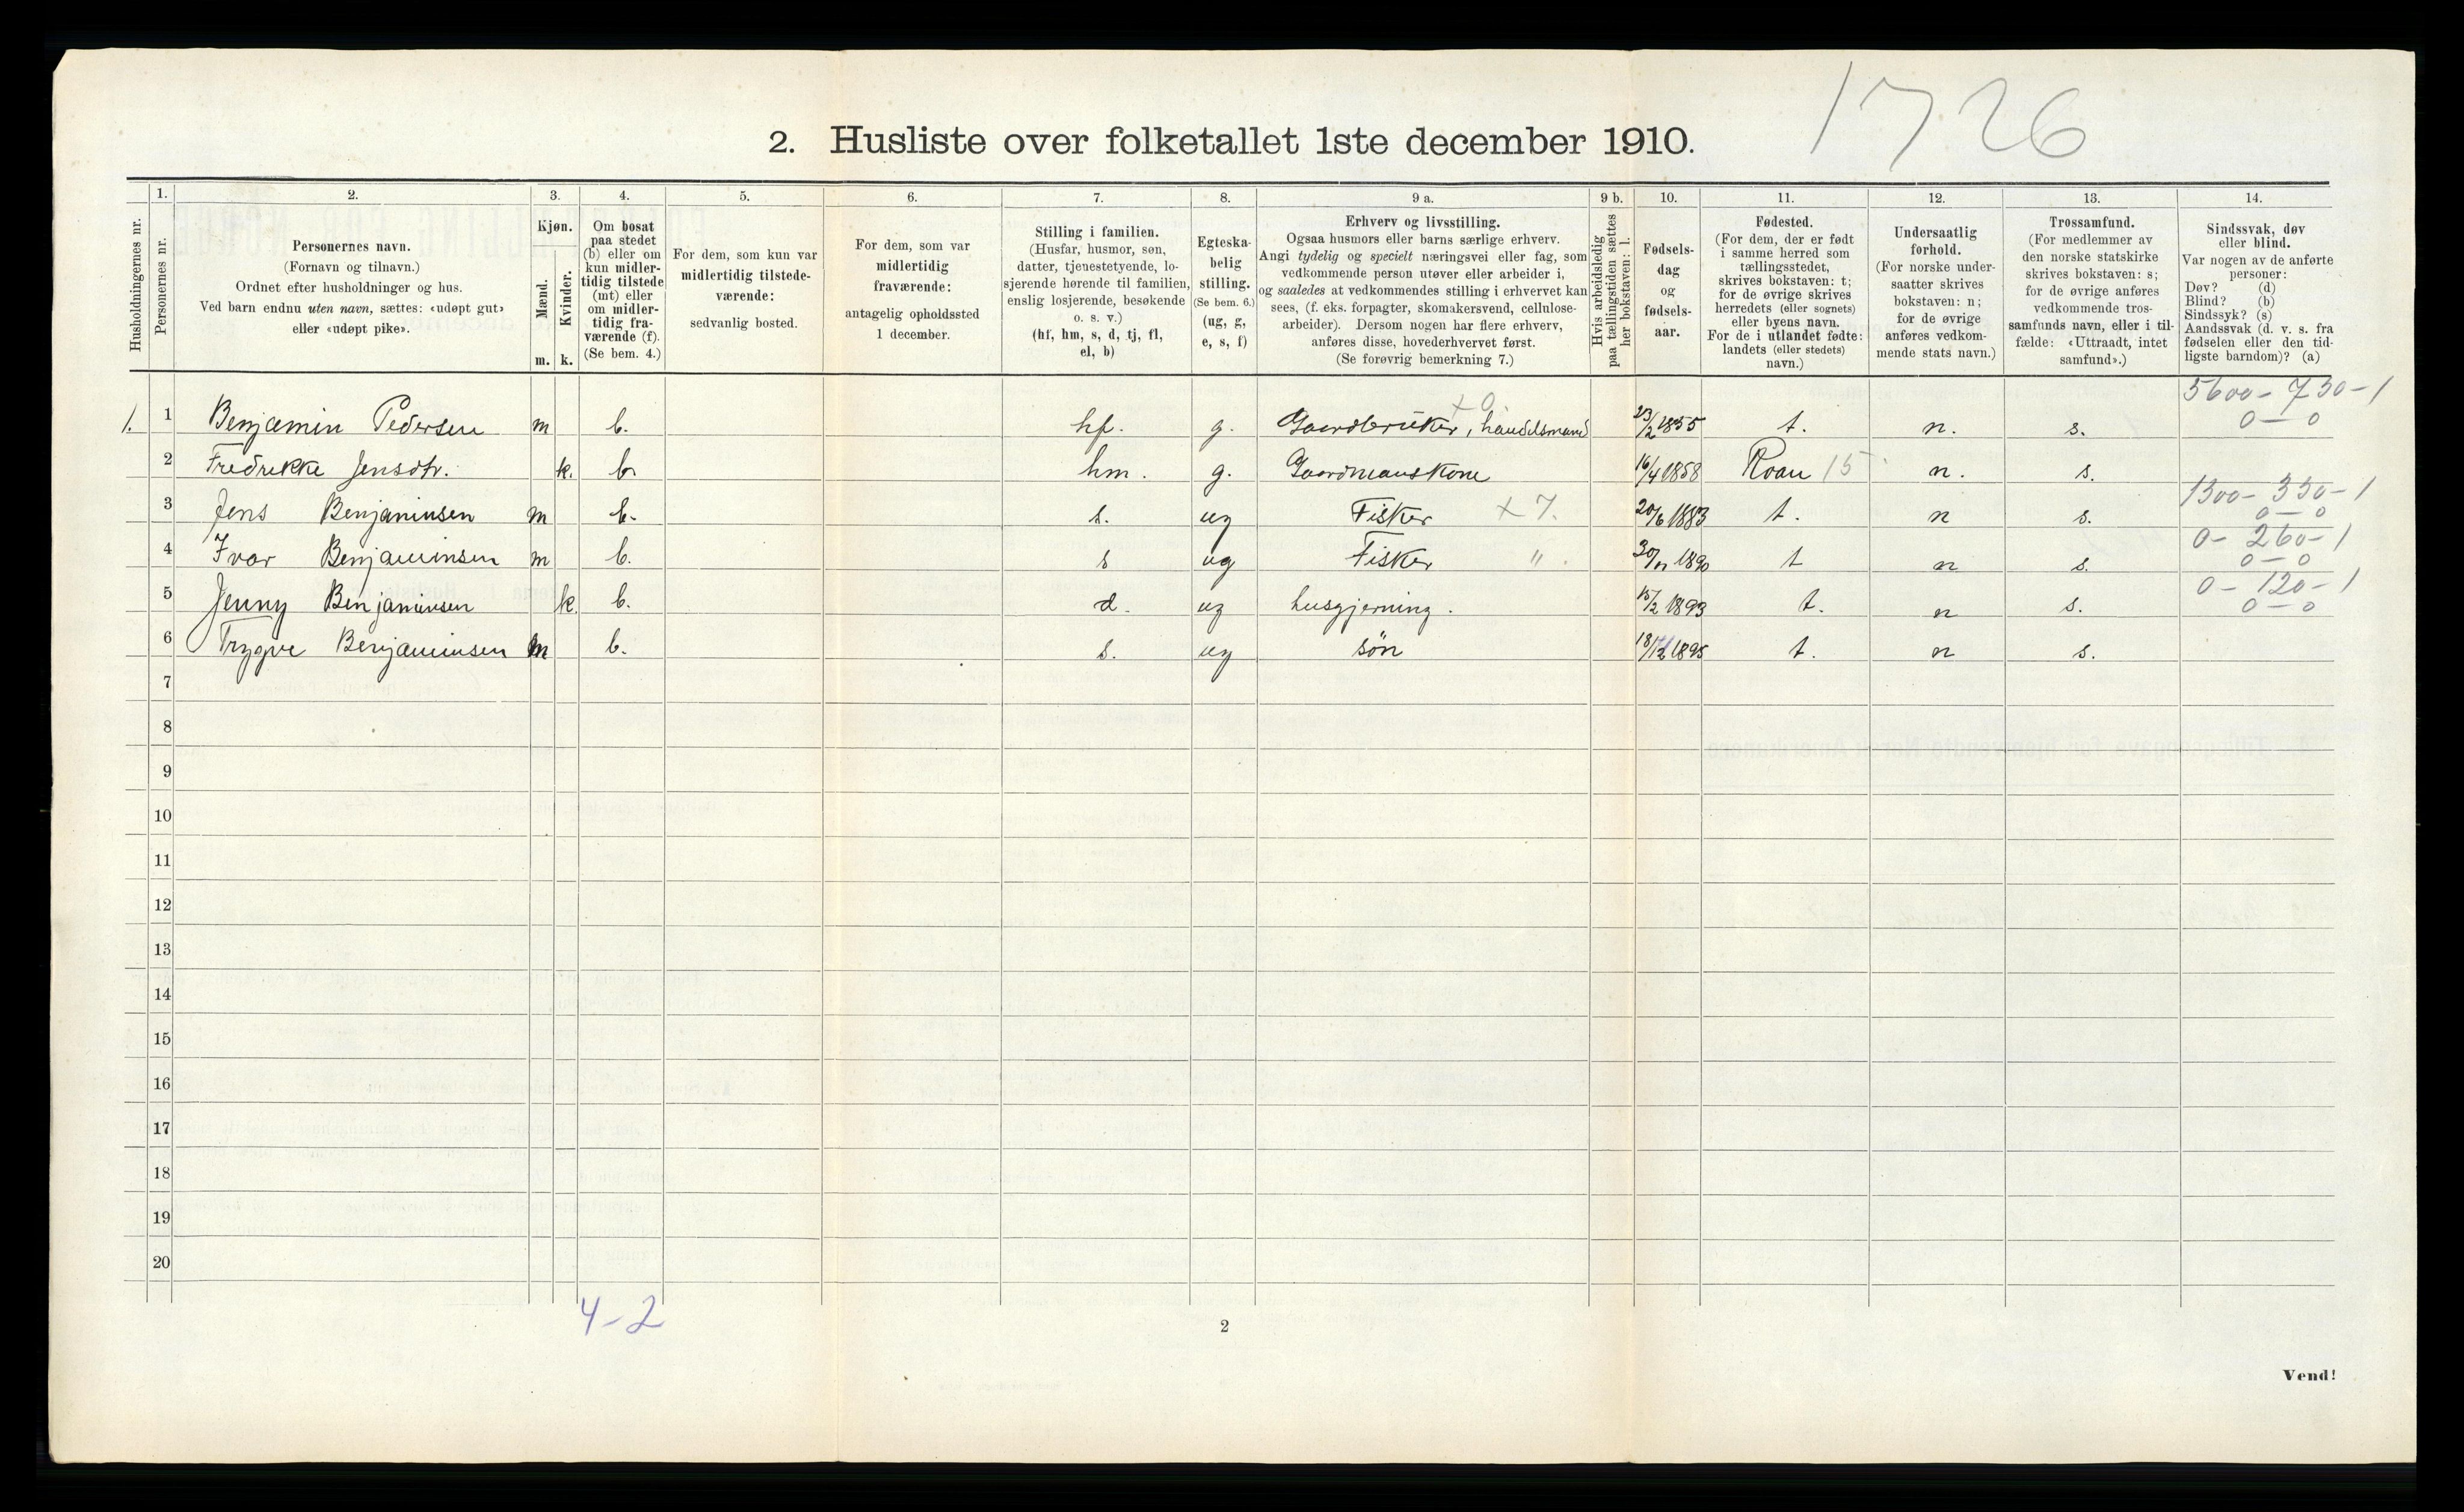 1726
2. Husliste over folketallet 1ste december 1910.
Husholdningernes nr.
1.
Personernes nr.
2.
Personernes navn.
(Fornavn og tilnavn.)
Ordnet efter husholdninger og hus.
Ved barn endnu uten navn, sættes: «udøpt gut»
eller «udøpt pike».
3.
Kjøn.
Mænd.
m.
Kvinder.
k.
4.
Om bosat
paa stedet
(b) eller om
kun midler-
tidig tilstede
(mt) eller
om midler-
tidig fra-
værende (f).
(Se bem. 4.)
5.
For dem, som kun var
midlertidig tilstede-
værende:
sedvanlig bosted.
6.
For dem, som var
midlertidig
fraværende:
antagelig opholdssted
1 december.
7.
Stilling i familien.
(Husfar, husmor, søn,
datter, tjenestetyende, lo-
sjerende hørende til familien,
enslig losjerende, besøkende
o. s. v.)
(hf, hm, s, d, tj, fl,
el, b)
8.
Egteska-
belig
stilling.
(Se bem. 6.)
(ug, g,
e, s, f)
9 a.
Erhverv og livsstilling.
Ogsaa husmors eller barns særlige erhverv.
Angi tydelig og specielt næringsvei eller fag, som
vedkommende person utøver eller arbeider i,
og saaledes at vedkommendes stilling i erhvervet kan
sees, (f. eks. forpagter, skomakersvend, cellulose-
arbeider). Dersom nogen har flere erhverv,
anføres disse, hovederhvervet først.
(Se forøvrig bemerkning 7.)
9 b.
Hvis arbeidsledig
paa tællingstiden sættes
her bokstaven: l.
10.
Fødsels-
dag
og
fødsels-
aar.
11.
Fødested.
(For dem, der er født
i samme herred som
tællingsstedet,
skrives bokstaven: t;
for de øvrige skrives
herredets (eller sognets)
eller byens navn.
For de i utlandet fødte:
landets (eller stedets)
navn.)
12.
Undersaatlig
forhold.
(For norske under-
saatter skrives
bokstaven: n;
for de øvrige
anføres vedkom-
mende stats navn.)
13.
Trossamfund.
(For medlemmer av
den norske statskirke
skrives bokstaven: s;
for de øvrige anføres
vedkommende tros-
samfunds navn, eller i til-
fælde: «Uttraadt, intet
samfund».)
14.
Sindssvak, døv
eller blind.
Var nogen av de anførte
personer:
Døv? (d)
Blind? (b)
Sindssyk? (s)
Aandssvak (d. v. s. fra
fødselen eller den tid-
ligste barndom)? (a)
5600 - 730 - 1
1. 1 Benjamin Pedersen m b. hf. g. Gaardbruker, handelsmand + 0 23/2 1855 t. n. s. 0 — 0
2 Fredrikke Jensdtr. k. b. hm. g. Gaardmanskone 16/4 1858 Roan 15 n. s.
1300 - 330 - 1
3 Jens Benjaminsen m b. s. ug Fisker + 7. 20/6 1883 t. n s. 0 — 0
0 - 260 - 1
4 Ivar Benjaminsen m b. s ug Fisker " 30/11 1890 t n s. 0 — 0
0 - 120 - 1
5 Jenny Benjaminsen k. b. d. ug husgjerning. 15/2 1893 t. n s. 0 — 0
6 Trygve Benjaminsen m b. s. ug søn 18/12 1895 t. n s.
7
8
9
10
11
12
13
14
15
16
17
18
19
20
4-2
2
Vend!